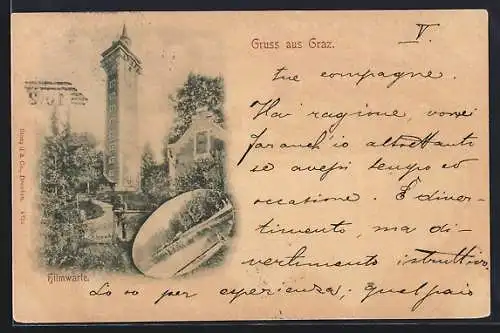 Gruss aus Graz.
V.
tue compagne.
Hai ragione, vorrei
far anch'io altrettanto
se avessi tempo ed
occasione. È diver-
timento, ma di-
vertimento istruttivo.
Lo so per esperienza; quel paio
Hilmwarte.